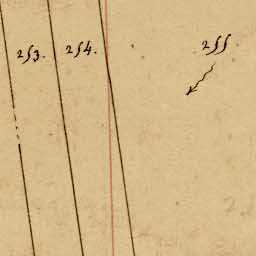 253.
254.
255